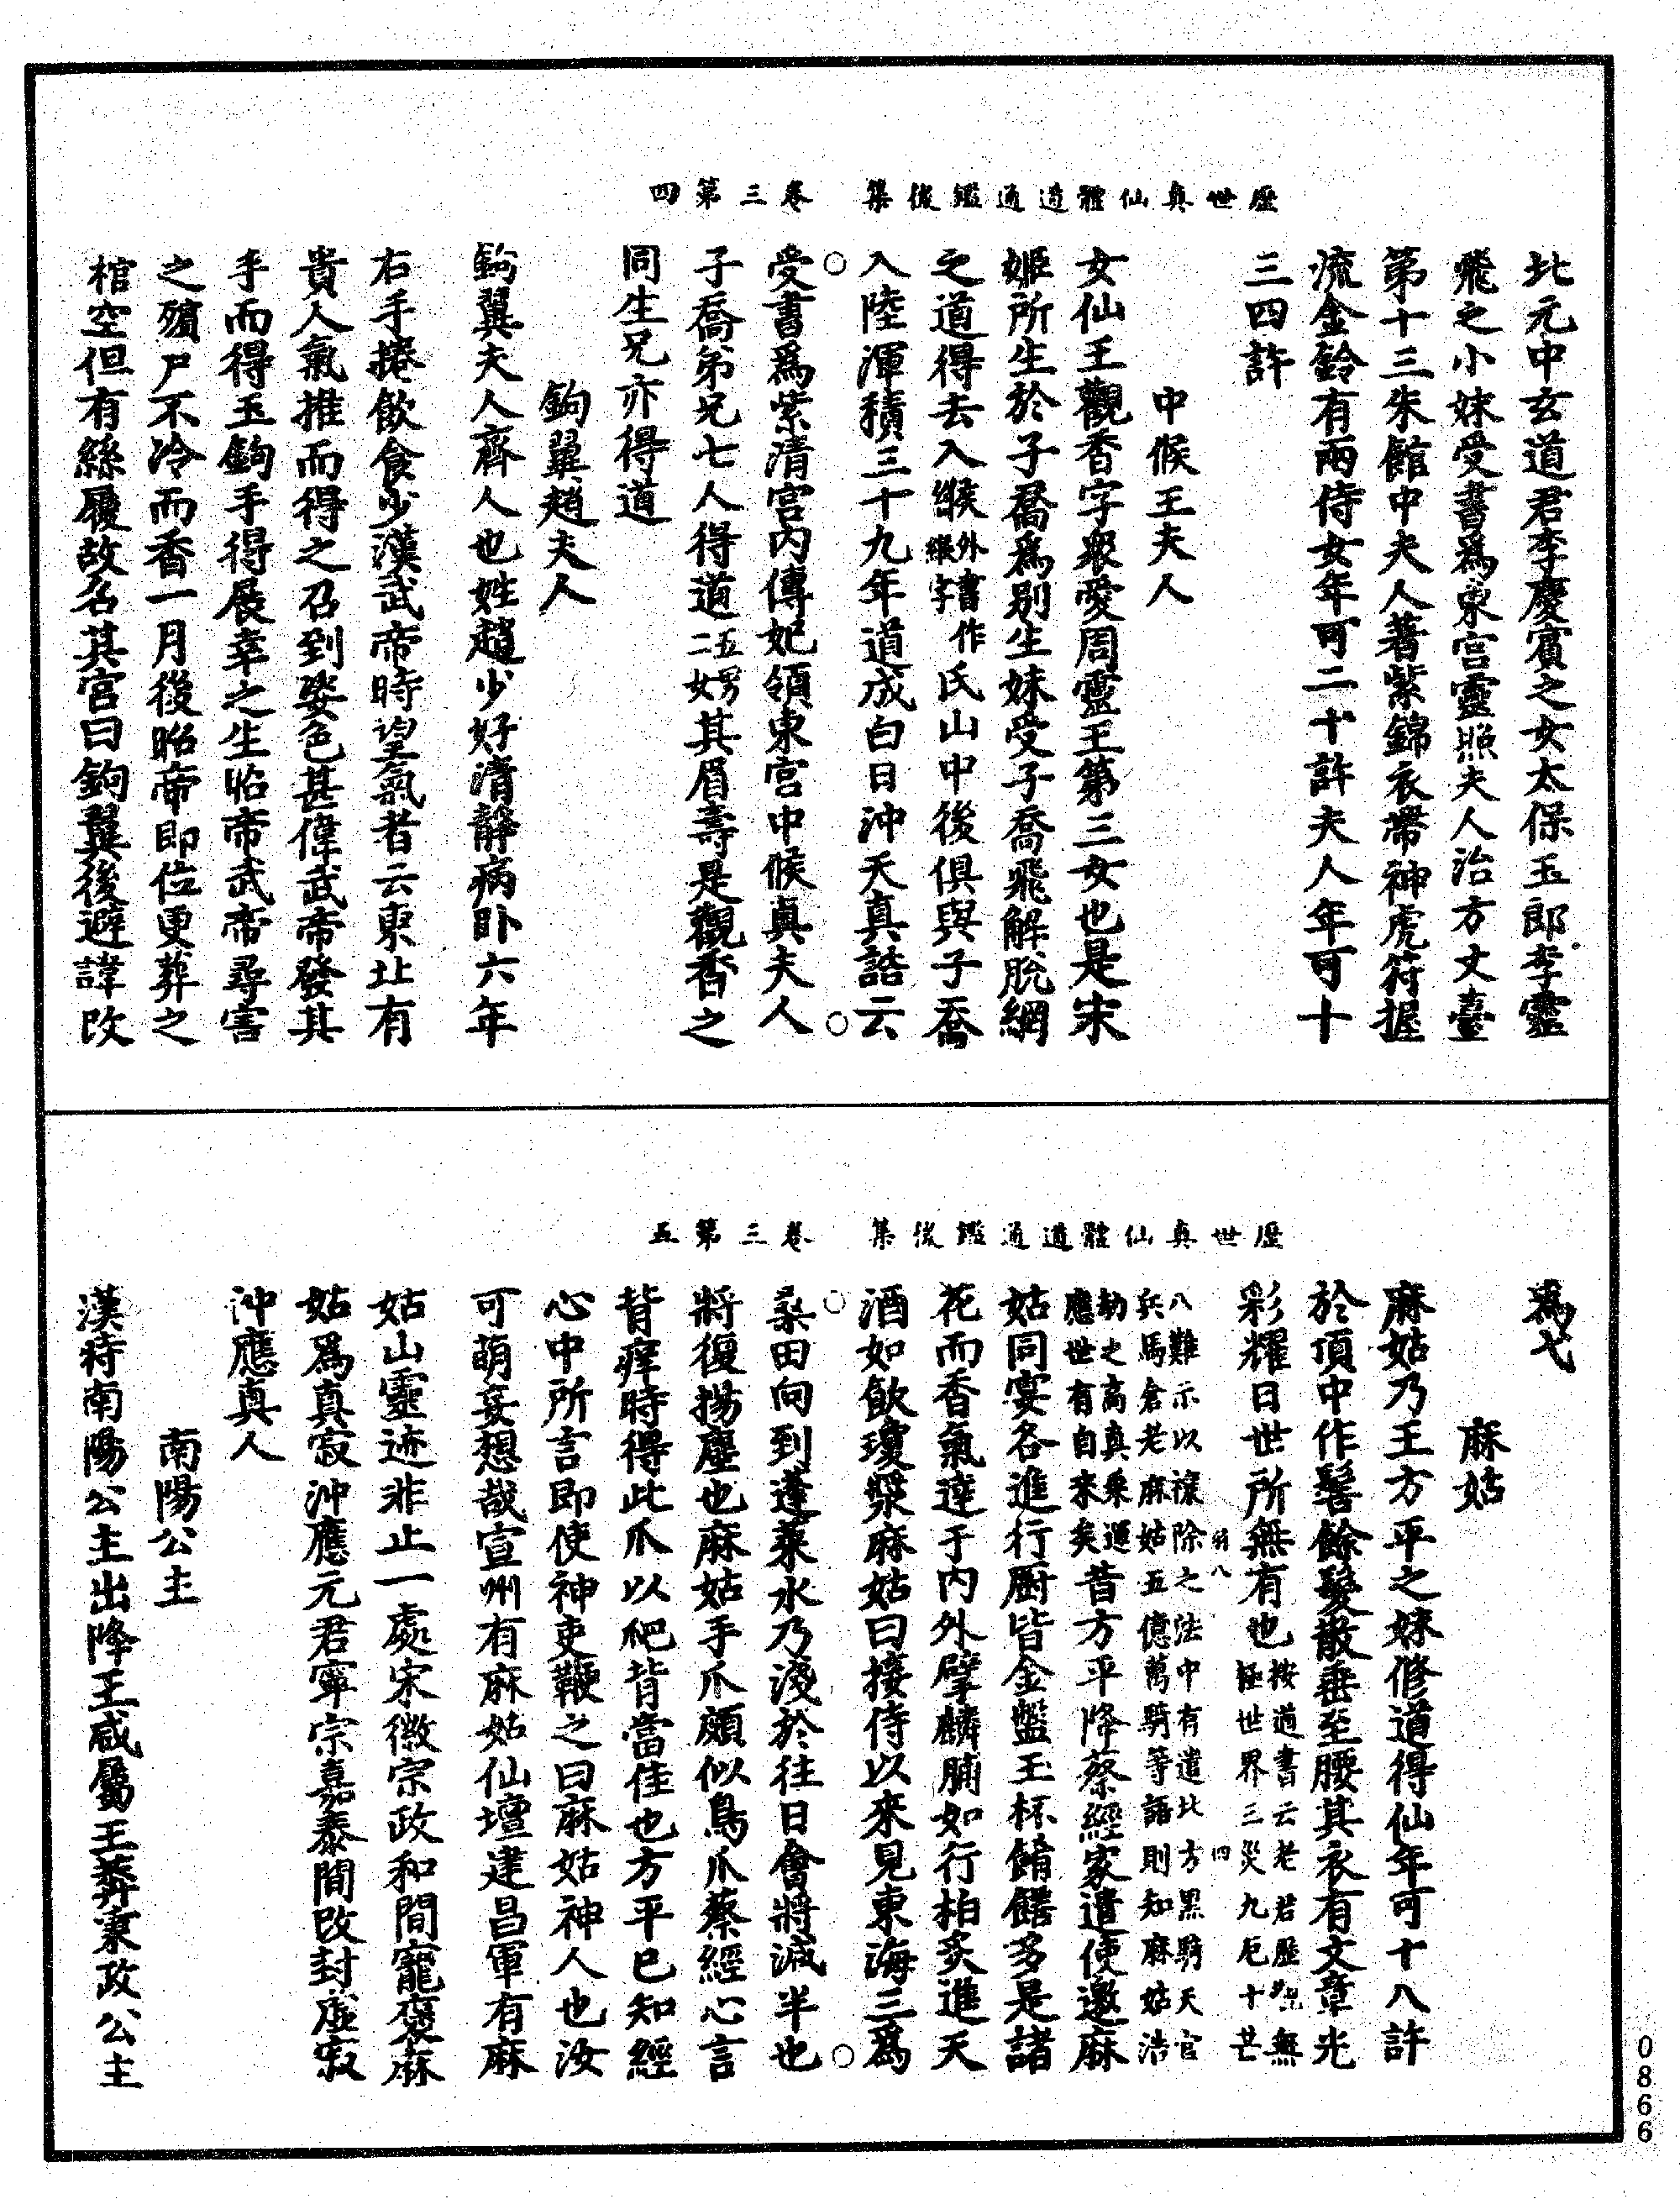 歷世真仙體道通鑑後集　卷三第四
北元中玄道君李慶賓之女太保玉郎李靈
飛之小妹受書為東宮靈照夫人治方丈臺
第十三朱館中夫人著紫錦衣帶神虎符握
流金鈴有兩侍女年可二十許夫人年可十
三四許
中候王夫人
女仙王觀香字眾愛周靈王第三女也是宋
姬所生於子喬為別生妹受子喬飛解脫網
之道得去入緱外書作緱字氏山中後俱與子喬
入陸渾積三十九年道成白日沖天真誥云
受書為紫清宮內傳妃領東宮中候真夫人
子喬弟兄七人得道五男二女其眉壽是觀香之
同生兄亦得道
鉤翼趙夫人
鉤翼夫人齊人也姓趙少好清靜病臥六年
右手捲飲食少漢武帝時望氣者云東北有
貴人氣推而得之召到姿色甚偉武帝發其
手而得玉鉤手得展幸之生昭帝武帝尋害
之殯尸不冷而香一月後昭帝即位更葬之
棺空但有絲履故名其宮曰鉤翼後避諱改
歷世真仙體道通鑑後集　卷三第五
為弋
麻姑
麻姑乃王方平之妹修道得仙年可十八許
於頂中作髻餘髮散垂至腰其衣有文章光
彩耀日世所無有也按道書云老君歷觀無極世界三災九厄十芒
八難示以禳除之法中有遣北方黑騎天官兵馬倉老麻姑五億萬騎等語則知麻姑浩
劫之高真乘運應世有自來矣昔方平降蔡經家遣使邀麻
姑同宴各進行廚皆金盤玉杯餚饍多是諸
花而香氣達于內外擘麟脯如行柏炙進天
酒如飲瓊漿麻姑曰接侍以來見東海三為
桑田向到蓬萊水乃淺於往日會將減半也
將復揚塵也麻姑手爪頗似鳥爪蔡經心言
背痒時得此爪以爬背當佳也方平已知經
心中所言即使神吏鞭之曰麻姑神人也汝
可萌妄想哉宣州有麻姑仙壇建昌軍有麻
姑山靈迹非止一處宋徽宗政和間寵褒麻
姑為真寂沖應元君寧宗嘉泰間改封虛寂
沖應真人
南陽公主
漢時南陽公主出降王咸屬王莽秉政公主
0866